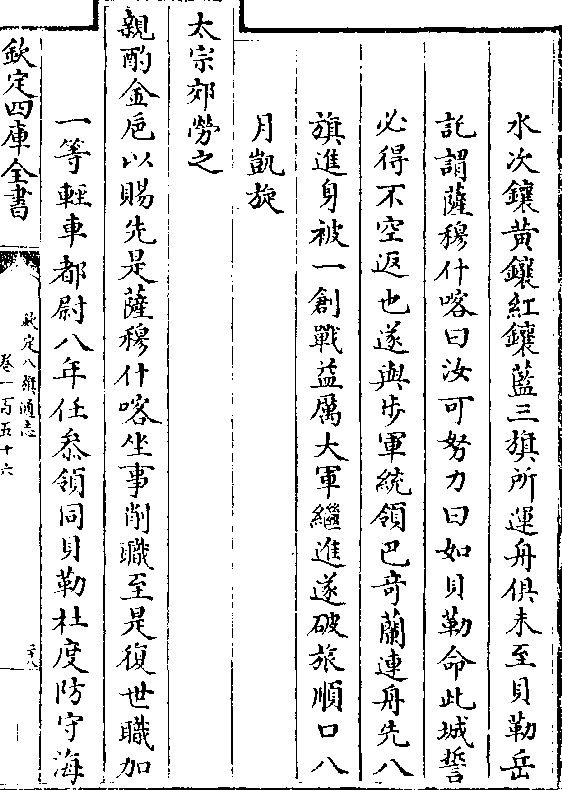 水次鑲黃鑲紅鑲藍三旗所運舟俱未至貝勒岳
託謂薩穆什喀曰汝可努力曰如貝勒命此城誓
必得不空返也遂與步軍統領巴奇蘭連舟先八
旗進身被一創戰益厲大軍繼進遂破旅順口八
月凱旋
太宗郊勞之
親酌金巵以賜先是薩穆什喀坐事削職至是復世職加
一等輕車都尉八年任叅領同貝勒杜度防守海
欽定四庫全書
欽定八旗通志
卷一百五十六